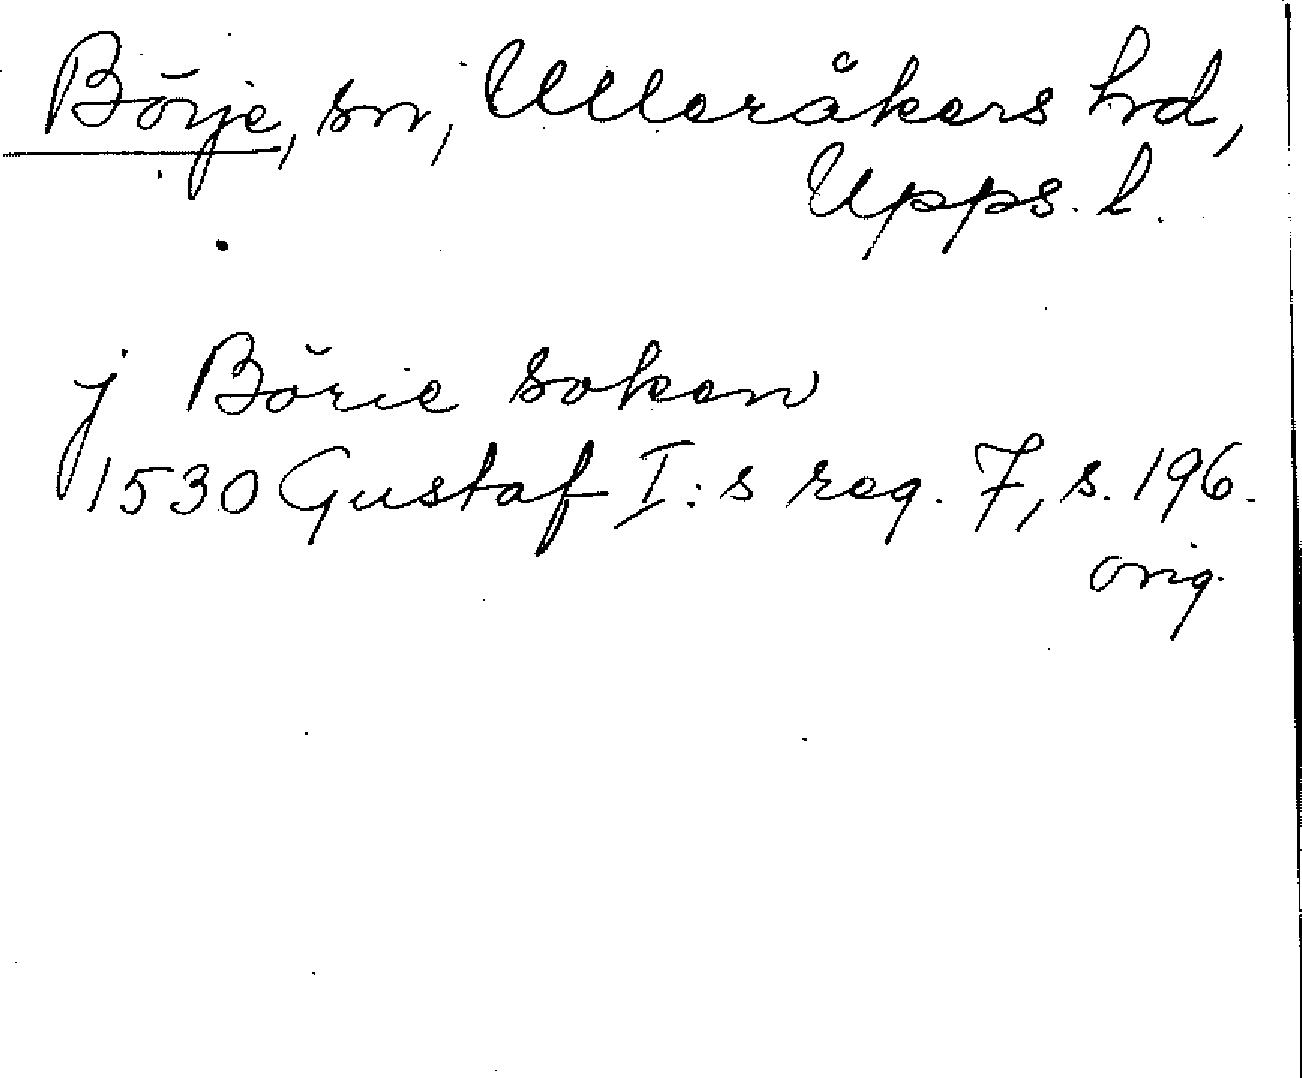 Börje, sn, Ulleråkers hd,
Upps. l.
j Börie soken
1530 Gustaf I:s reg. 7, s. 196.
orig.